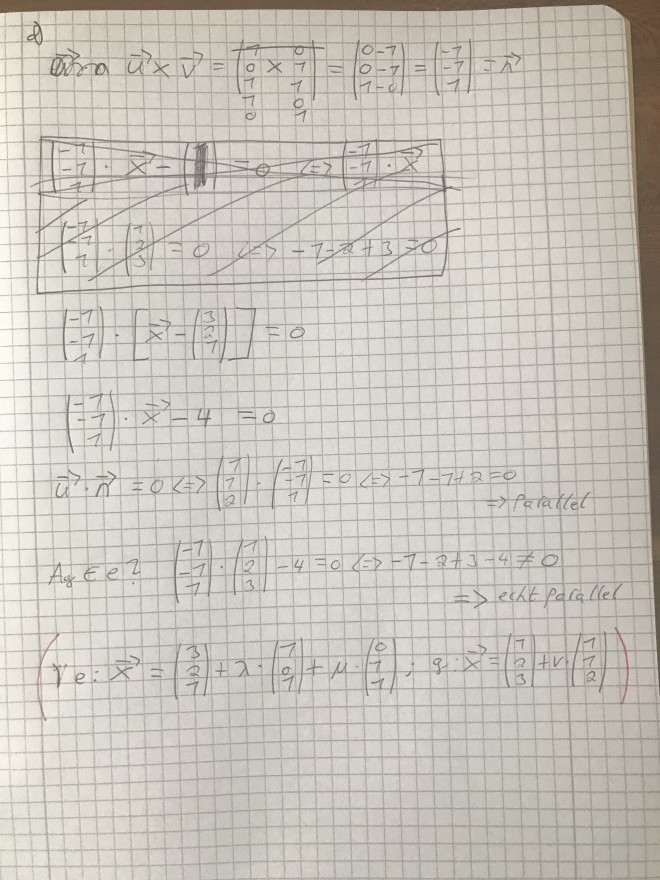 d)
u⃗ × v⃗ = (1 0 1 1 0) × (0 1 1 0 1) = (0-1 0-1 1-0) = (-1 -1 1) = n⃗
(-1 -1 1) · x⃗ - ( ) = 0 <=> (-1 -1 1) · x⃗
(-1 -1 1) · (1 2 3) = 0 <=> -1-2+3 = 0
(-1 -1 1) · [x⃗ - (3 2 1)] = 0
(-1 -1 1) · x⃗ - 4 = 0
u⃗ · n⃗ = 0 <=> (1 1 2) · (-1 -1 1) = 0 <=> -1-1+2 = 0
=> Parallel
Ag ∈ e? (-1 -1 1) · (1 2 3) - 4 = 0 <=> -1-2+3-4 ≠ 0
=> echt parallel
e: x⃗ = (3 2 1) + λ · (1 0 1) + μ · (0 1 1) ; g: x⃗ = (1 2 3) + v · (1 1 2)